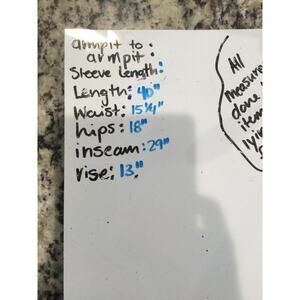 armpit to
armpit:
Sleeve Length:
Length: 40"
Waist: 15 1/4"
hips: 18"
inseam: 29"
rise: 13"
All
measure
done
item
lyin